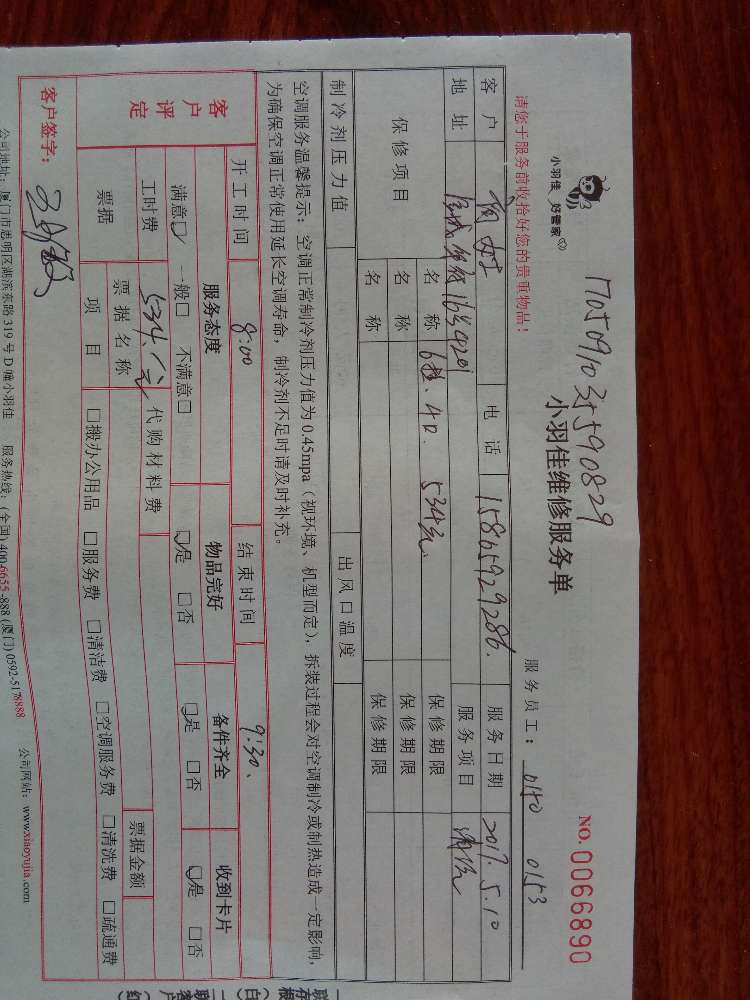 1705091035590829
小羽佳 好管家
小羽佳维修服务单
NO. 0066890
请您于服务前收拾好您的贵重物品！
服务员工： 0150 0153
客户 电话 15805929286 服务日期 2017.5.10
地址 16号 服务项目
保修项目 名称 534元 保修期限
名称 保修期限
名称 保修期限
制冷剂压力值 出风口温度
空调服务温馨提示：空调正常制冷剂压力值为0.45mpa（视环境、机型而定），拆装过程会对空调制冷或制热造成一定影响，
为确保空调正常使用延长空调寿命，制冷剂不足时请及时补充。
开工时间 8:00 结束时间 9:30
客户评定 服务态度 物品完好 备件齐全 收到卡片
满意☑ 一般□ 不满意□ ☑是 □否 ☑是 □否 ☑是 □否
工时费 534元 代购材料费
票据 票据名称 票据金额
项目 □搬办公用品 □服务费 □清洁费 □空调服务费 □清洗费 □疏通费
客户签字：
公司地址：厦门市思明区湖滨东路319号D幢小羽佳 服务热线：(全国)400-6655-888 (厦门)0592-5178888 公司网站：www.xiaoyujia.com